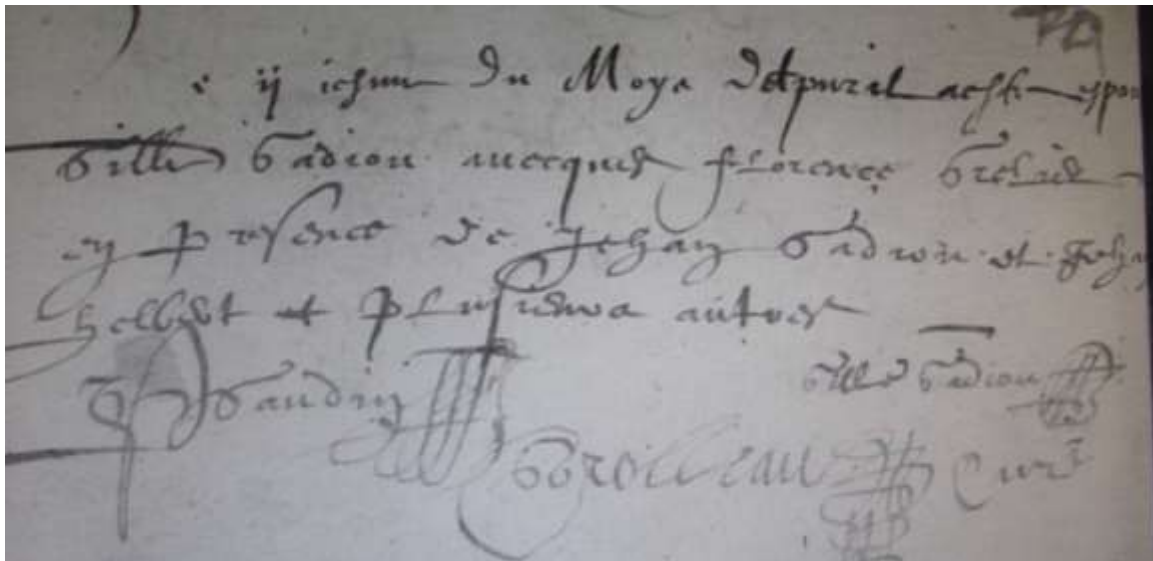 e ij iesme du Moys dapvril a este espou
Gille Gadiou avecques florence Grelie
en presence de Jehan Gadiou et Jeha
et plusieurs autres
Gaudin
Gille Gadiou
Groilleau Curé